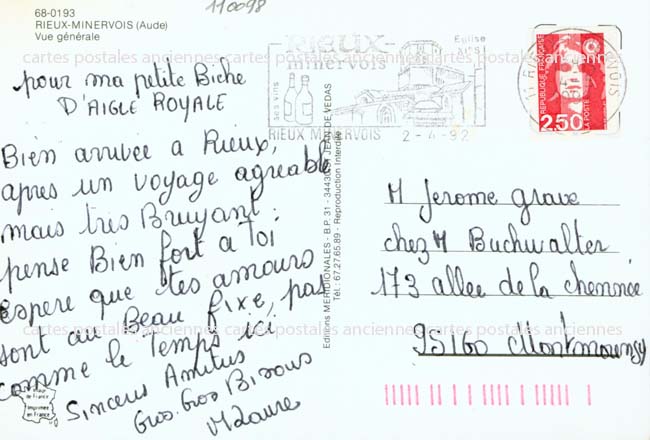 110098
68-0193
RIEUX-MINERVOIS (Aude)
Vue générale
cartes postales anciennes cartes postales anciennes cartes postales anciennes
pour ma petite Biche
D'AIGLE ROYALE
Bien arrivée a Rieux,
apres un voyage agreable
mais très Bruyant.
pense Bien fort a Toi
espere que tes amours
sont au Beau fixe, pas
comme le Temps ici
Sincères Amitiés
Gros. Gros Bisous
Imprimé
en France
RIEUX-
minervois
Eglise
ses vins
RIEUX MINERVOIS 2-4-92
REPUBLIQUE FRANÇAISE
LA POSTE
2,50
Editions MERIDIONALES - B.P. 31 - 34430 ST JEAN DE VEDAS
Tél.: 67.27.65.89 - Reproduction Interdite
M Jerome grave
chez M Buchwalter
173 allee de la chemnée
95160 Montmorency
cartes postales anciennes cartes postales anciennes cartes postales anciennes